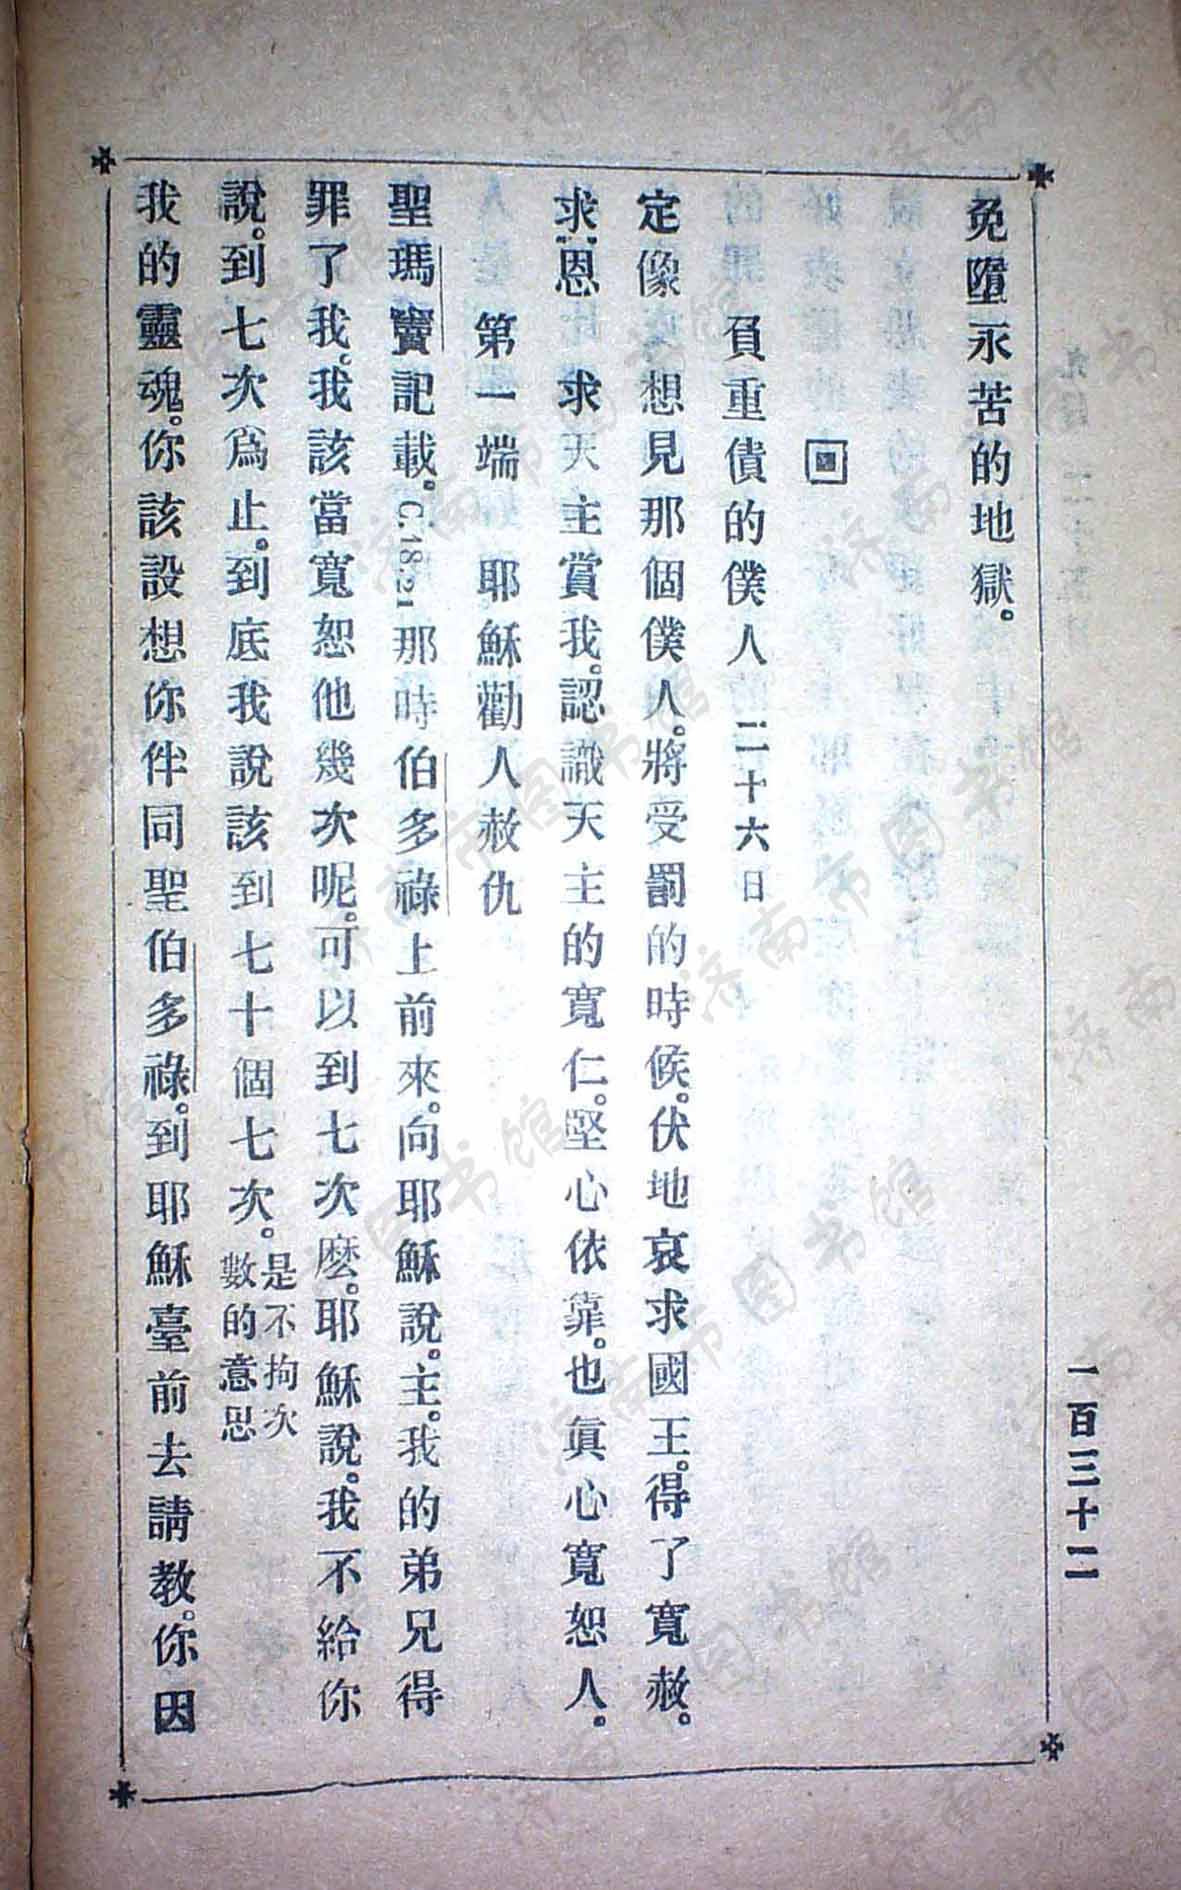 免墮永苦的地獄。
負重債的僕人 二十六日
定像 想見那個僕人。將受罰的時候。伏地哀求國王。得了寬赦。
求恩 求天主賞我。認識天主的寬仁。堅心依靠。也眞心寬恕人。
第一端 耶穌勸人赦仇
聖瑪竇記載。C.18.21那時伯多祿上前來。向耶穌說。主。我的弟兄得
罪了我。我該當寬恕他幾次呢。可以到七次麽。耶穌說。我不給你
說。到七次爲止。到底我說該到七十個七次。是不拘次數的意思
我的靈魂。你該設想你伴同聖伯多祿。到耶穌臺前去請教。你因
一百三十二
济南市图书馆